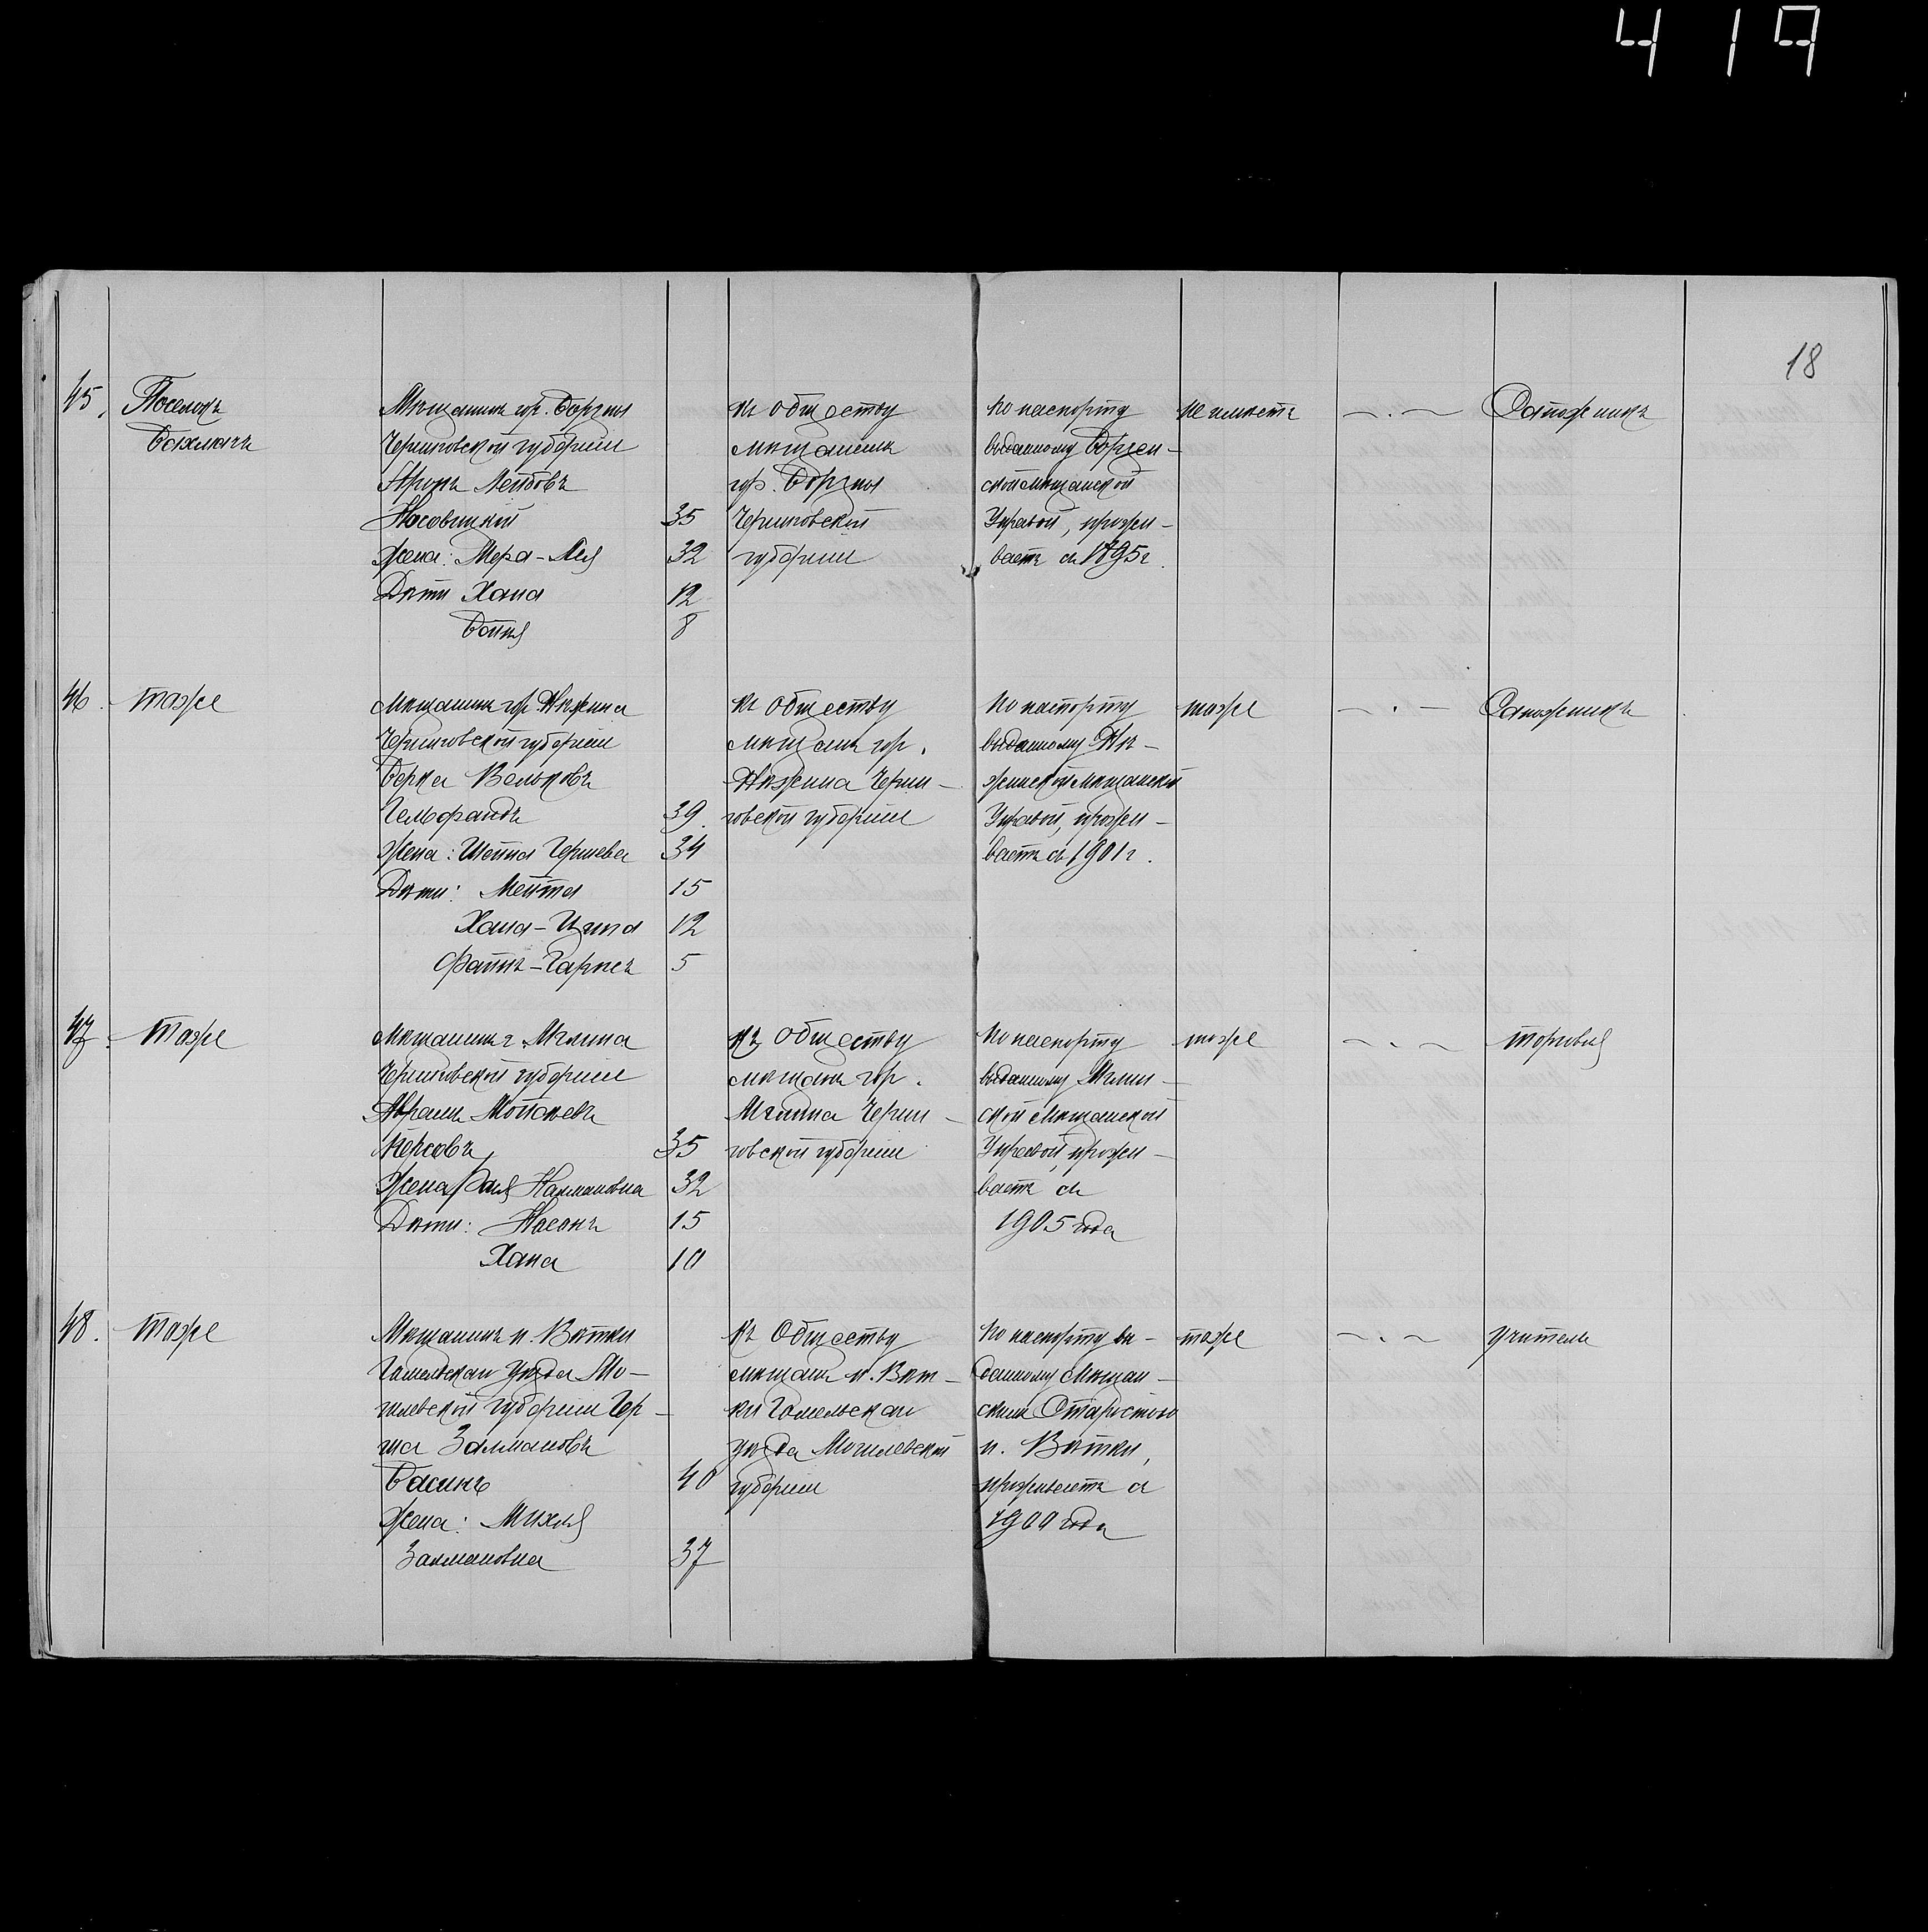 419
18
45.
Поселокъ
Бахмачъ
Мѣщанинъ гор. Борзны
Черниговской губерніи
Аронъ Лейбовъ
Носовицкій 35
жена: Мера-Лея 32
Дѣти Хана 12
Бейля 8
къ обществу
мѣщанъ
гор. Борзны
Черниговской
губерніи
по паспорту
выданному Борзен-
ской мѣщанской
Управой, прожи-
ваетъ съ 1895 г.
не имѣетъ
— . —
Сапожникъ
46.
тоже
Мѣщанинъ гор. Нѣжина
Черниговской губерніи
Берка Вольковъ
Гельфандъ 39.
жена: Шейна Гершева 34
Дѣти: Мейта 15
Хана-Ципа 12
Файтъ- 5
къ обществу
мѣщанъ гор.
Нѣжина Черни-
говской губерніи
по паспорту
выданному Нѣ-
жинской мѣщанской
Управой, прожи-
ваетъ съ 1901 г.
тоже
— . —
Сапожникъ
47.
тоже
Мѣщанинъ г. Мглина
Черниговской губерніи
Абрамъ
35
Жена Рая Нахмановна 32
Дѣти: Насонъ 15
Хана 10
къ обществу
мѣщанъ гор.
Мглина Черни-
говской губерніи
по паспорту
выданному Мглин-
ской мѣщанской
Управой, прожи-
ваетъ съ
1905 года
тоже
— . —
торговля
48.
тоже
Мѣщанинъ м. Вѣтки
Гомельскаго уѣзда Мо-
гилевской губерніи Гер-
ша Залмановъ
Басинъ 40
жена: Михля
Залмановна 37
къ Обществу
мѣщанъ м. Вѣт-
ки Гомельскаго
уѣзда Могилевской
губерніи
по паспорту вы-
данному Мѣщан-
скимъ Старостою
м. Вѣтки,
проживаетъ съ
1900 года
тоже
— . —
учитель